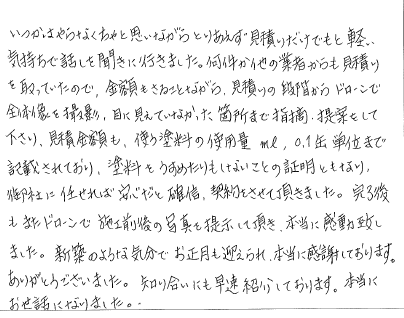 いつかはやらなくちゃと思いながらとりあえず見積りだけでもと軽い
気持ちで話しを聞きに行きました。何件か他の業者からも見積り
を取っていたので、金額もさることながら、見積りの段階からドローンで
全体像を撮影、目に見えていなかった箇所まで指摘・提案をして
下さい、見積金額も、使う塗料の使用量 ml, 0.1缶単位まで
記載されており、塗料をうすめたりもしないことの証明ともなり、
御社に任せれば安心だと確信、契約をさせて頂きました。完了後
もまたドローンで施工前後の写真を提示して頂き、本当に感動致し
ました。新築のような気分でお正月も迎えられ、本当に感謝しております。
ありがとうございました。知り合いにも早速紹介しております。本当に
お世話になりました。